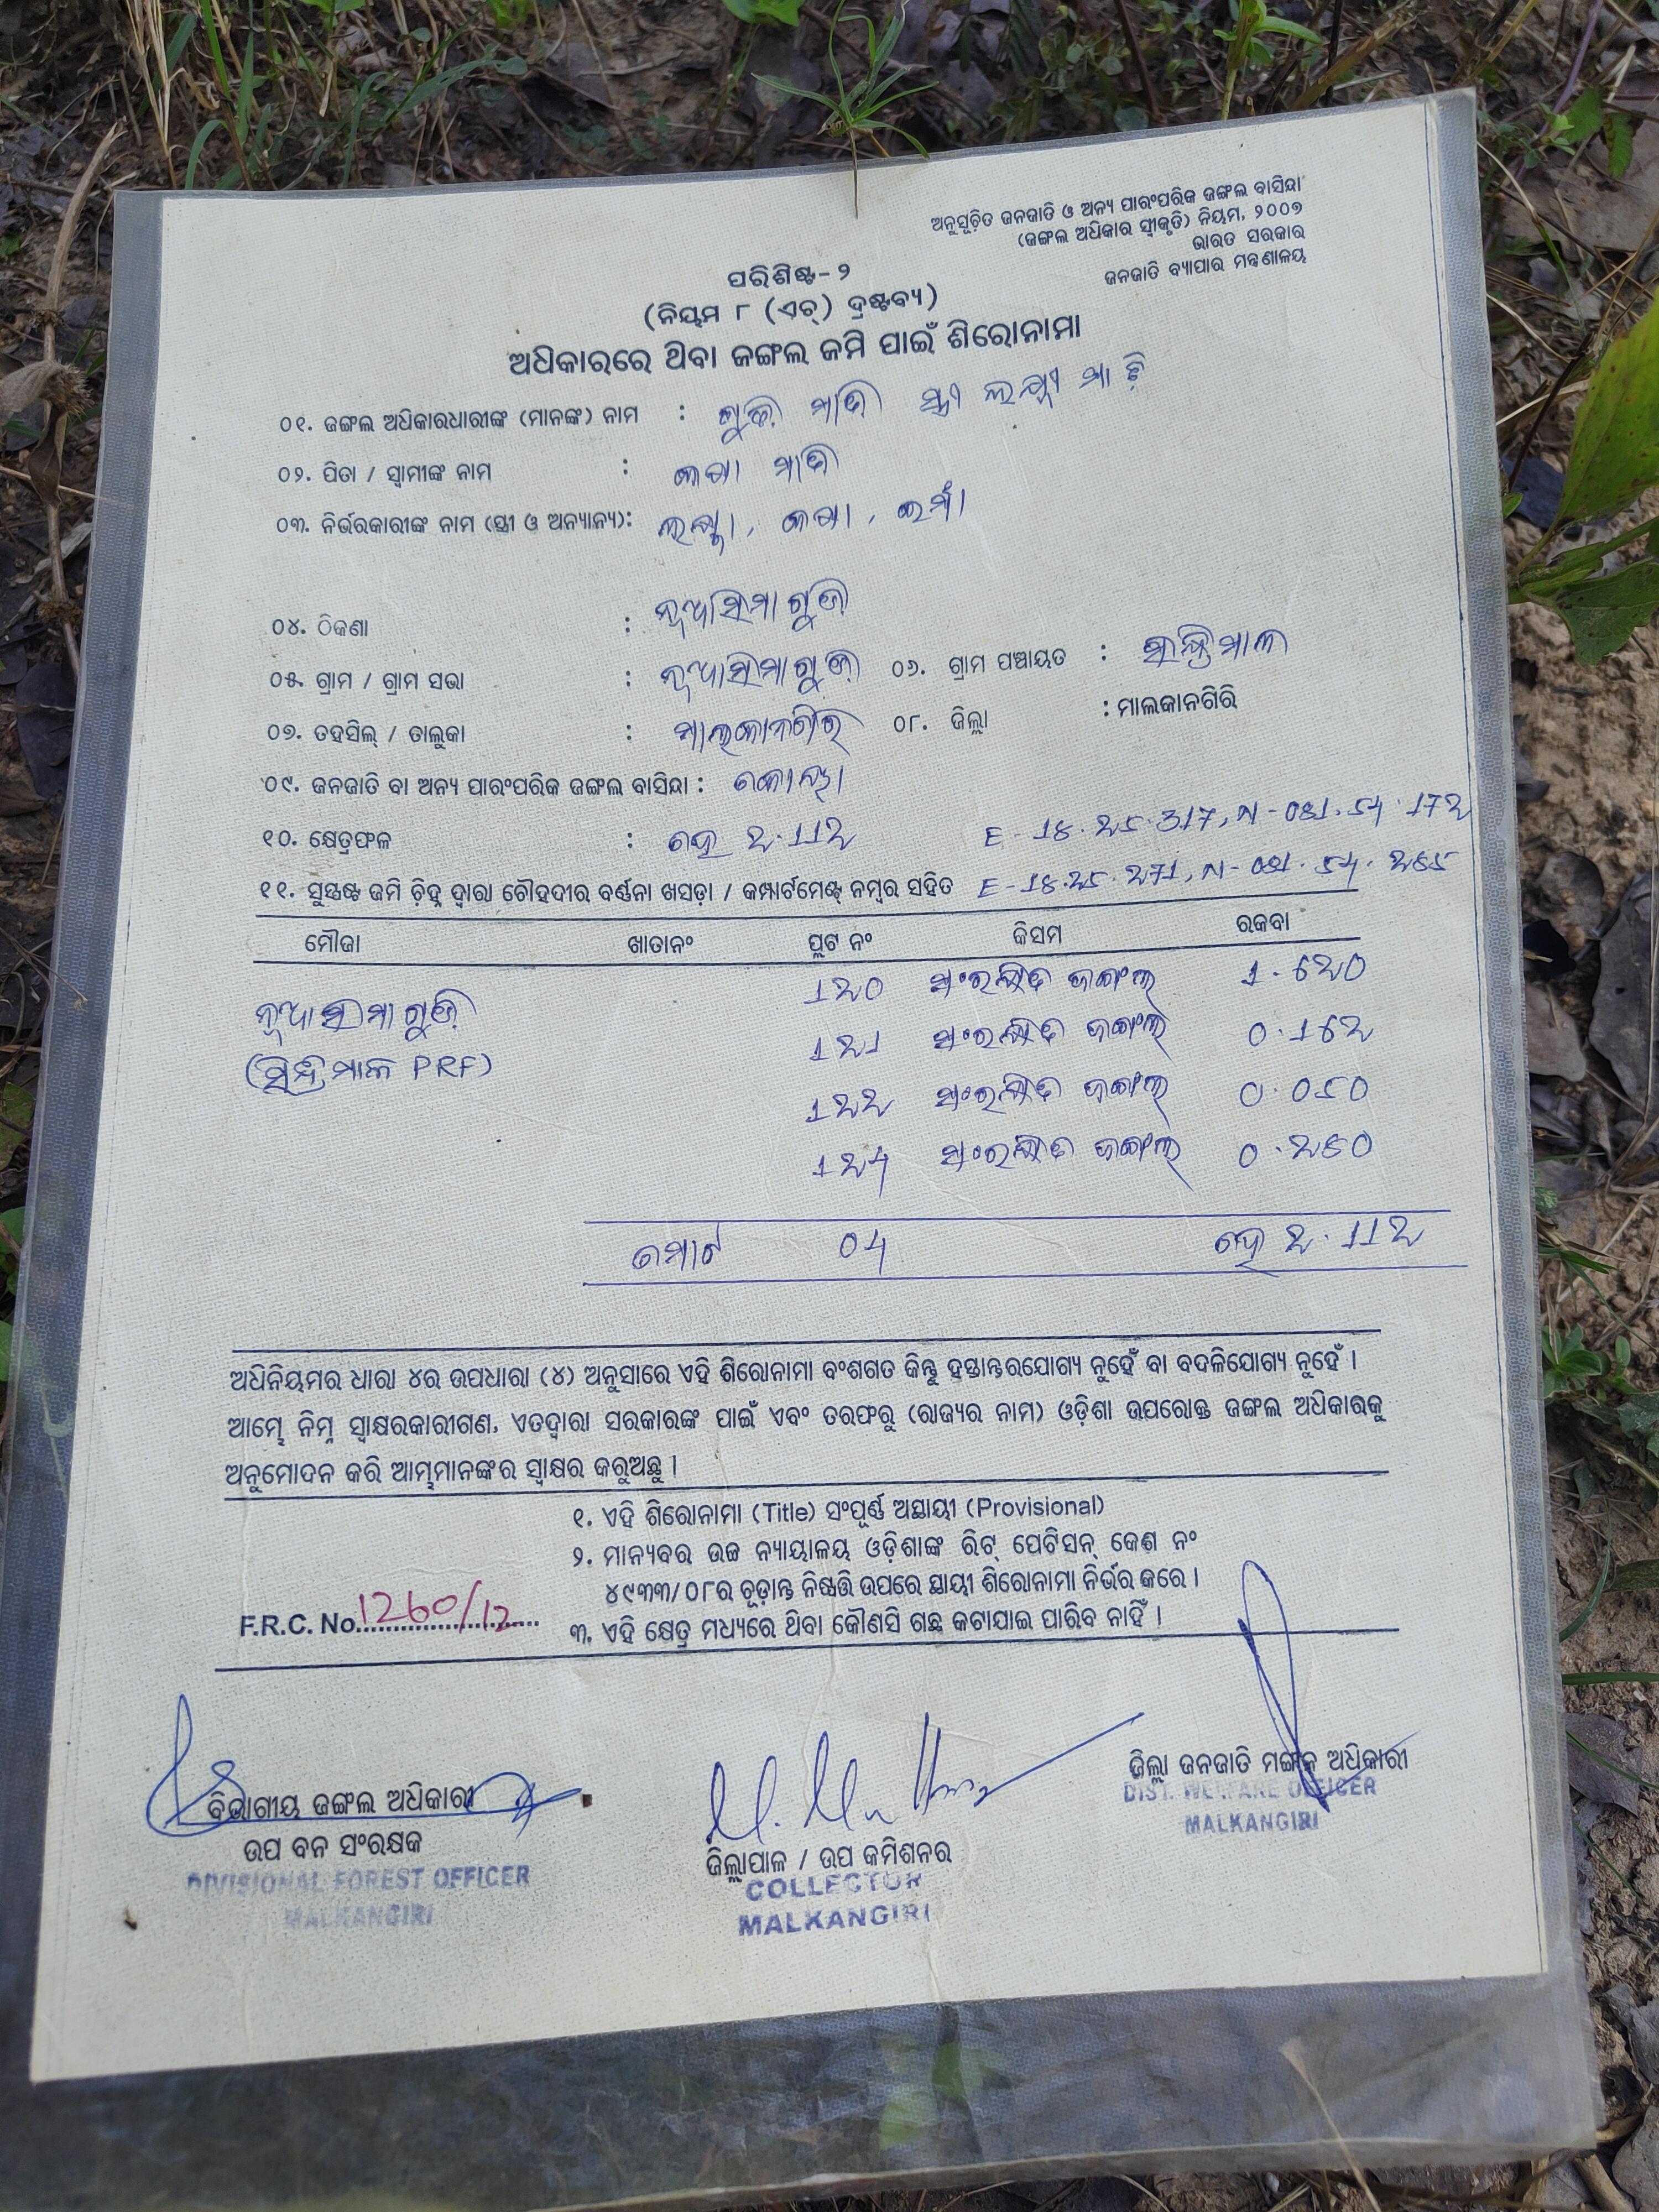 ଅନୁସୂଚିତ ଜନଜାତି ଓ ଅନ୍ୟ ପାରଂପରିକ ଜଙ୍ଗଲ ବାସିନ୍ଦା
(ଜଙ୍ଗଲ ଅଧିକାର ସ୍ୱୀକୃତି) ନିୟମ, ୨୦୦୭
ଭାରତ ସରକାର
ଜନଜାତି ବ୍ୟାପାର ମନ୍ତ୍ରଣାଳୟ
ପରିଶିଷ୍ଟ-୨
(ନିୟମ ୮ (ଏଚ୍) ଦ୍ରଷ୍ଟବ୍ୟ)
ଅଧିକାରରେ ଥିବା ଜଙ୍ଗଲ ଜମି ପାଇଁ ଶିରୋନାମା
୦୧. ଜଙ୍ଗଲ ଅଧିକାରଧାରୀଙ୍କ (ମାନଙ୍କ) ନାମ :
୦୨. ପିତା / ସ୍ୱାମୀଙ୍କ ନାମ :
୦୩. ନିର୍ଭରକାରୀଙ୍କ ନାମ (ସ୍ତ୍ରୀ ଓ ଅନ୍ୟାନ୍ୟ):
୦୪. ଠିକଣା : ନୂଆସୀମାଗୁଡ଼ା
୦୫. ଗ୍ରାମ / ଗ୍ରାମ ସଭା : ନୂଆସୀମାଗୁଡ଼ା ୦୬. ଗ୍ରାମ ପଞ୍ଚାୟତ :
୦୭. ତହସିଲ୍ / ତାଲୁକା : ମାଲକାନଗିରି ୦୮. ଜିଲ୍ଲା : ମାଲକାନଗିରି
୦୯. ଜନଜାତି ବା ଅନ୍ୟ ପାରଂପରିକ ଜଙ୍ଗଲ ବାସିନ୍ଦା : କୋୟା
୧୦. କ୍ଷେତ୍ରଫଳ : ହେ 2.112
୧୧. ସୁସ୍ପଷ୍ଟ ଜମି ଚିହ୍ନ ଦ୍ୱାରା ଚୌହଦୀର ବର୍ଣ୍ଣନା ଖସଡ଼ା / କମ୍ପାର୍ଟମେଣ୍ଟ୍ ନମ୍ବର ସହିତ
ମୌଜା ଖାତାନଂ ପ୍ଲଟ ନଂ କିସମ ରକବା
ନୂଆସୀମାଗୁଡ଼ା 120 ସଂରକ୍ଷିତ ଜଙ୍ଗଲ 1.620
PRF) 121 ସଂରକ୍ଷିତ ଜଙ୍ଗଲ 0.162
122 ସଂରକ୍ଷିତ ଜଙ୍ଗଲ 0.050
124 ସଂରକ୍ଷିତ ଜଙ୍ଗଲ 0.280
ମୋଟ 04 ହେ 2.112
ଅଧିନିୟମର ଧାରା ୪ର ଉପଧାରା (୪) ଅନୁସାରେ ଏହି ଶିରୋନାମା ବଂଶଗତ କିନ୍ତୁ ହସ୍ତାନ୍ତରଯୋଗ୍ୟ ନୁହେଁ ବା ବଦଳିଯୋଗ୍ୟ ନୁହେଁ ।
ଆମ୍ଭେ ନିମ୍ନ ସ୍ୱାକ୍ଷରକାରୀଗଣ, ଏତଦ୍ୱାରା ସରକାରଙ୍କ ପାଇଁ ଏବଂ ତରଫରୁ (ରାଜ୍ୟର ନାମ) ଓଡ଼ିଶା ଉପରୋକ୍ତ ଜଙ୍ଗଲ ଅଧିକାରକୁ
ଅନୁମୋଦନ କରି ଆମ୍ଭମାନଙ୍କର ସ୍ୱାକ୍ଷର କରୁଅଛୁ ।
୧. ଏହି ଶିରୋନାମା (Title) ସଂପୂର୍ଣ୍ଣ ଅସ୍ଥାୟୀ (Provisional)
୨. ମାନ୍ୟବର ଉଚ୍ଚ ନ୍ୟାୟାଳୟ ଓଡ଼ିଶାଙ୍କ ରିଟ୍ ପେଟିସନ୍ କେଶ ନଂ
୪୯୩୩/୦୮ର ଚୂଡ଼ାନ୍ତ ନିଷ୍ପତ୍ତି ଉପରେ ସ୍ଥାୟୀ ଶିରୋନାମା ନିର୍ଭର କରେ ।
F.R.C. No. 1260/12
୩. ଏହି କ୍ଷେତ୍ର ମଧ୍ୟରେ ଥିବା କୌଣସି ଗଛ କଟାଯାଇ ପାରିବ ନାହିଁ ।
ବିଭାଗୀୟ ଜଙ୍ଗଲ ଅଧିକାରୀ
ଉପ ବନ ସଂରକ୍ଷକ
DIVISIONAL FOREST OFFICER
MALKANGIRI
ଜିଲ୍ଲାପାଳ / ଉପ କମିଶନର
COLLECTOR
MALKANGIRI
ଜିଲ୍ଲା ଜନଜାତି ମଙ୍ଗଳ ଅଧିକାରୀ
DIST. WELFARE OFFICER
MALKANGIRI